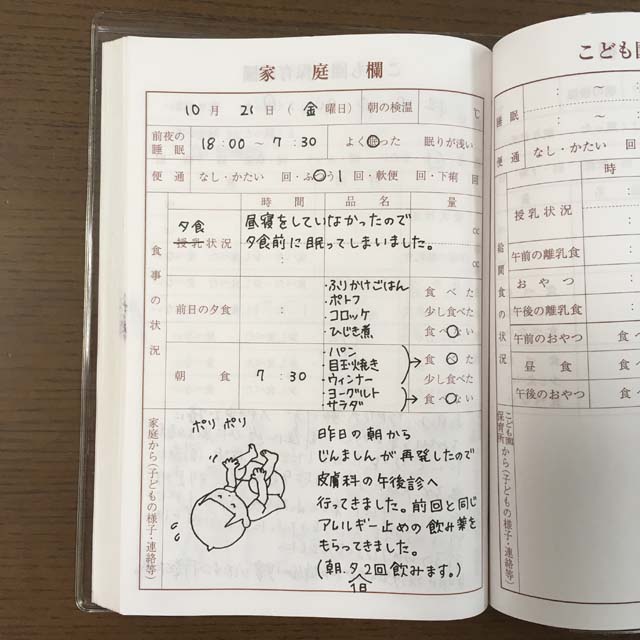 家庭欄
10月 21日(金曜日) 朝の検温 ℃
前夜の睡眠 18:00～7:30 よく眠った 眠りが浅い
便通 なし・かたい 回・ふつう1回・軟便 回・下痢 回
時間 品名 量
食事の状況
夕食
授乳状況
昼寝をしていなかったので
夕食前に眠ってしまいました。
cc
: cc
前日の夕食 :
・ふりかけごはん
・ポトフ
・コロッケ
・ひじき煮
食べた
少し食べた
食べない
朝食 7:30
・パン
・目玉焼き
・ウィンナー
・ヨーグルト
・サラダ
食べた
少し食べた
食べない
家庭から(子どもの様子・連絡等)
ポリ ポリ
昨日の朝から
じんましんが再発したので
皮膚科の午後診へ
行ってきました。前回と同じ
アレルギー止めの飲み薬を
もらってきました。
(朝.夕2回飲みます。)
1日
こども園
睡眠 :
: ～ :
便通 なし・かたい
時
授乳状況 :
:
給間食の状況
午前の離乳食
おやつ
午後の離乳食
午前のおやつ 食
昼食 食
午後のおやつ 食
こども園
保育所
から(子どもの様子・連絡等)